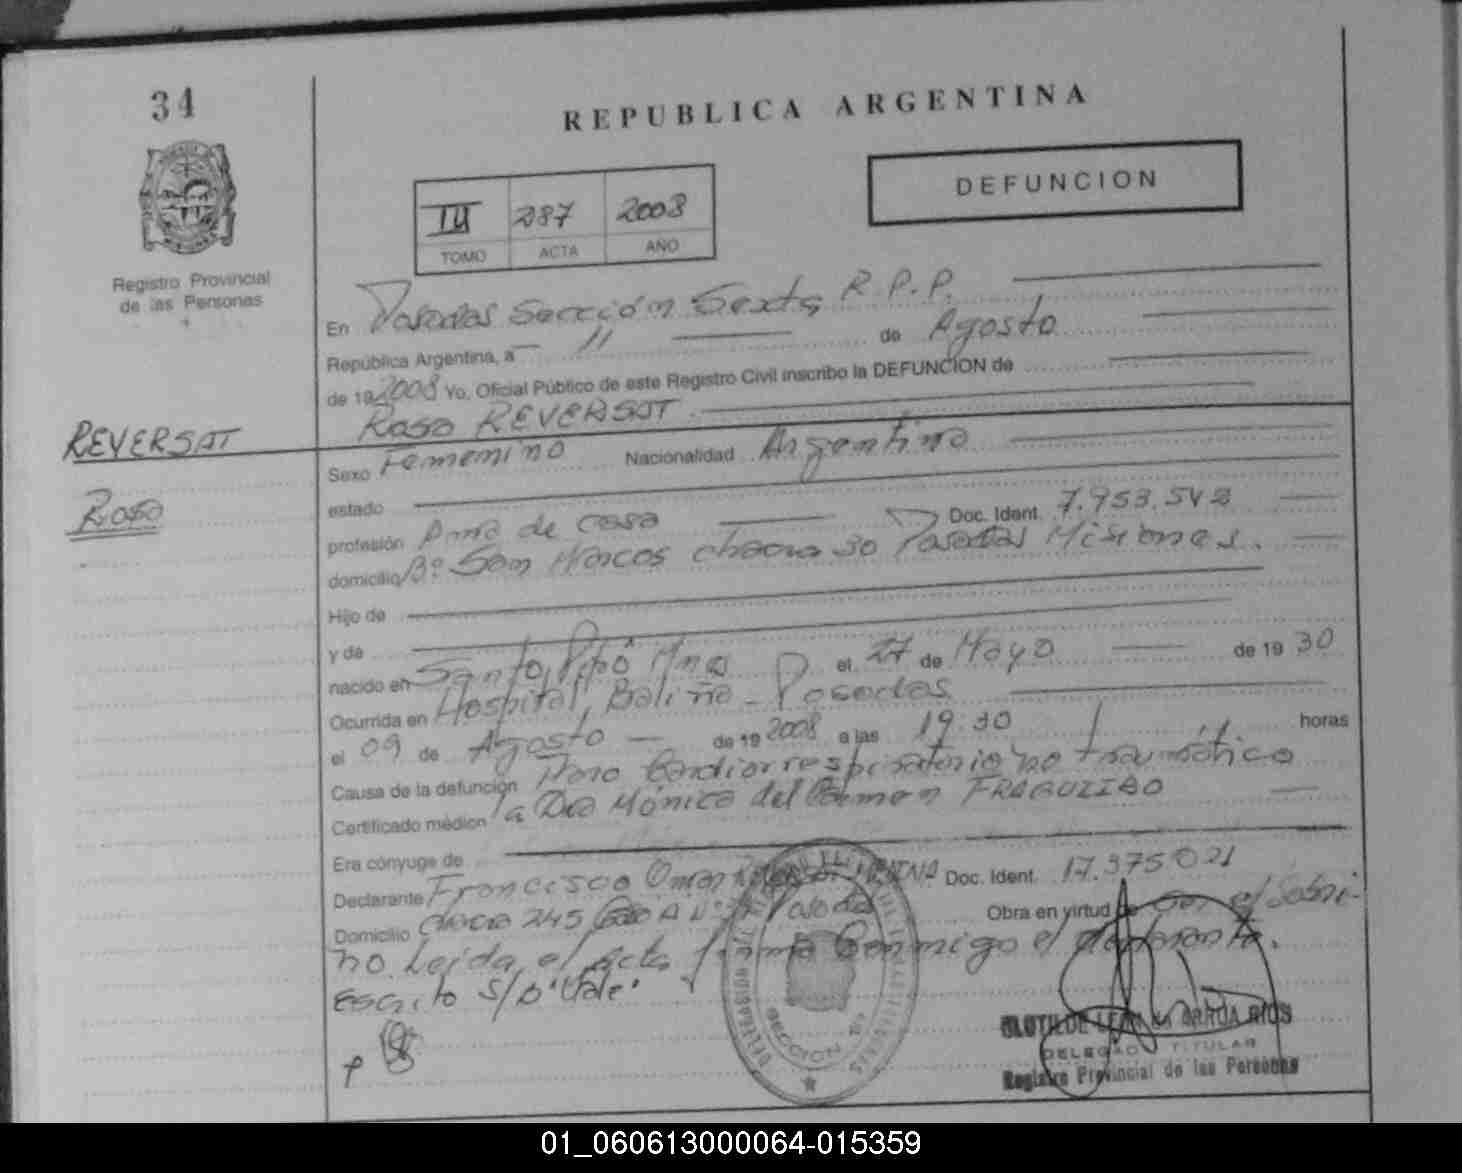 34
REPUBLICA ARGENTINA
DEFUNCION
III 287 2008
TOMO ACTA AÑO
Registro Provincial
de las Personas
En Posadas Sección Sexta R.P.P.
República Argentina, a 11 de Agosto
de 19 2008 Yo, Oficial Público de este Registro Civil inscribo la DEFUNCION de
Rosa REVERSAT
REVERSAT
Rosa
Sexo Femenino Nacionalidad Argentina
estado
profesión Ama de casa Doc. Ident. 7.953.542
domicilio Bº San Marcos chacra 30 Posadas Misiones.
Hijo de
y de
nacido en Santo Pipó Mnes el 27 de Mayo de 19 30
Ocurrida en Hospital Baliña - Posadas
el 09 de Agosto de 19 2008 a las 19:30 horas
Causa de la defunción Paro Cardiorrespiratorio no traumático
Certificado médico la Dra Mónica del Carmen
Era cónyuge de
Declarante Francisco Omar Doc. Ident. 17.375021
Domicilio chacra 245 Posadas Obra en virtud de ser el Sobri-
no. Leida el Acta firma Conmigo el declarante.
Escrito S/B "Vale"
SECCION
DELEGADO TITULAR
Registro Provincial de las Personas
01_060613000064-015359